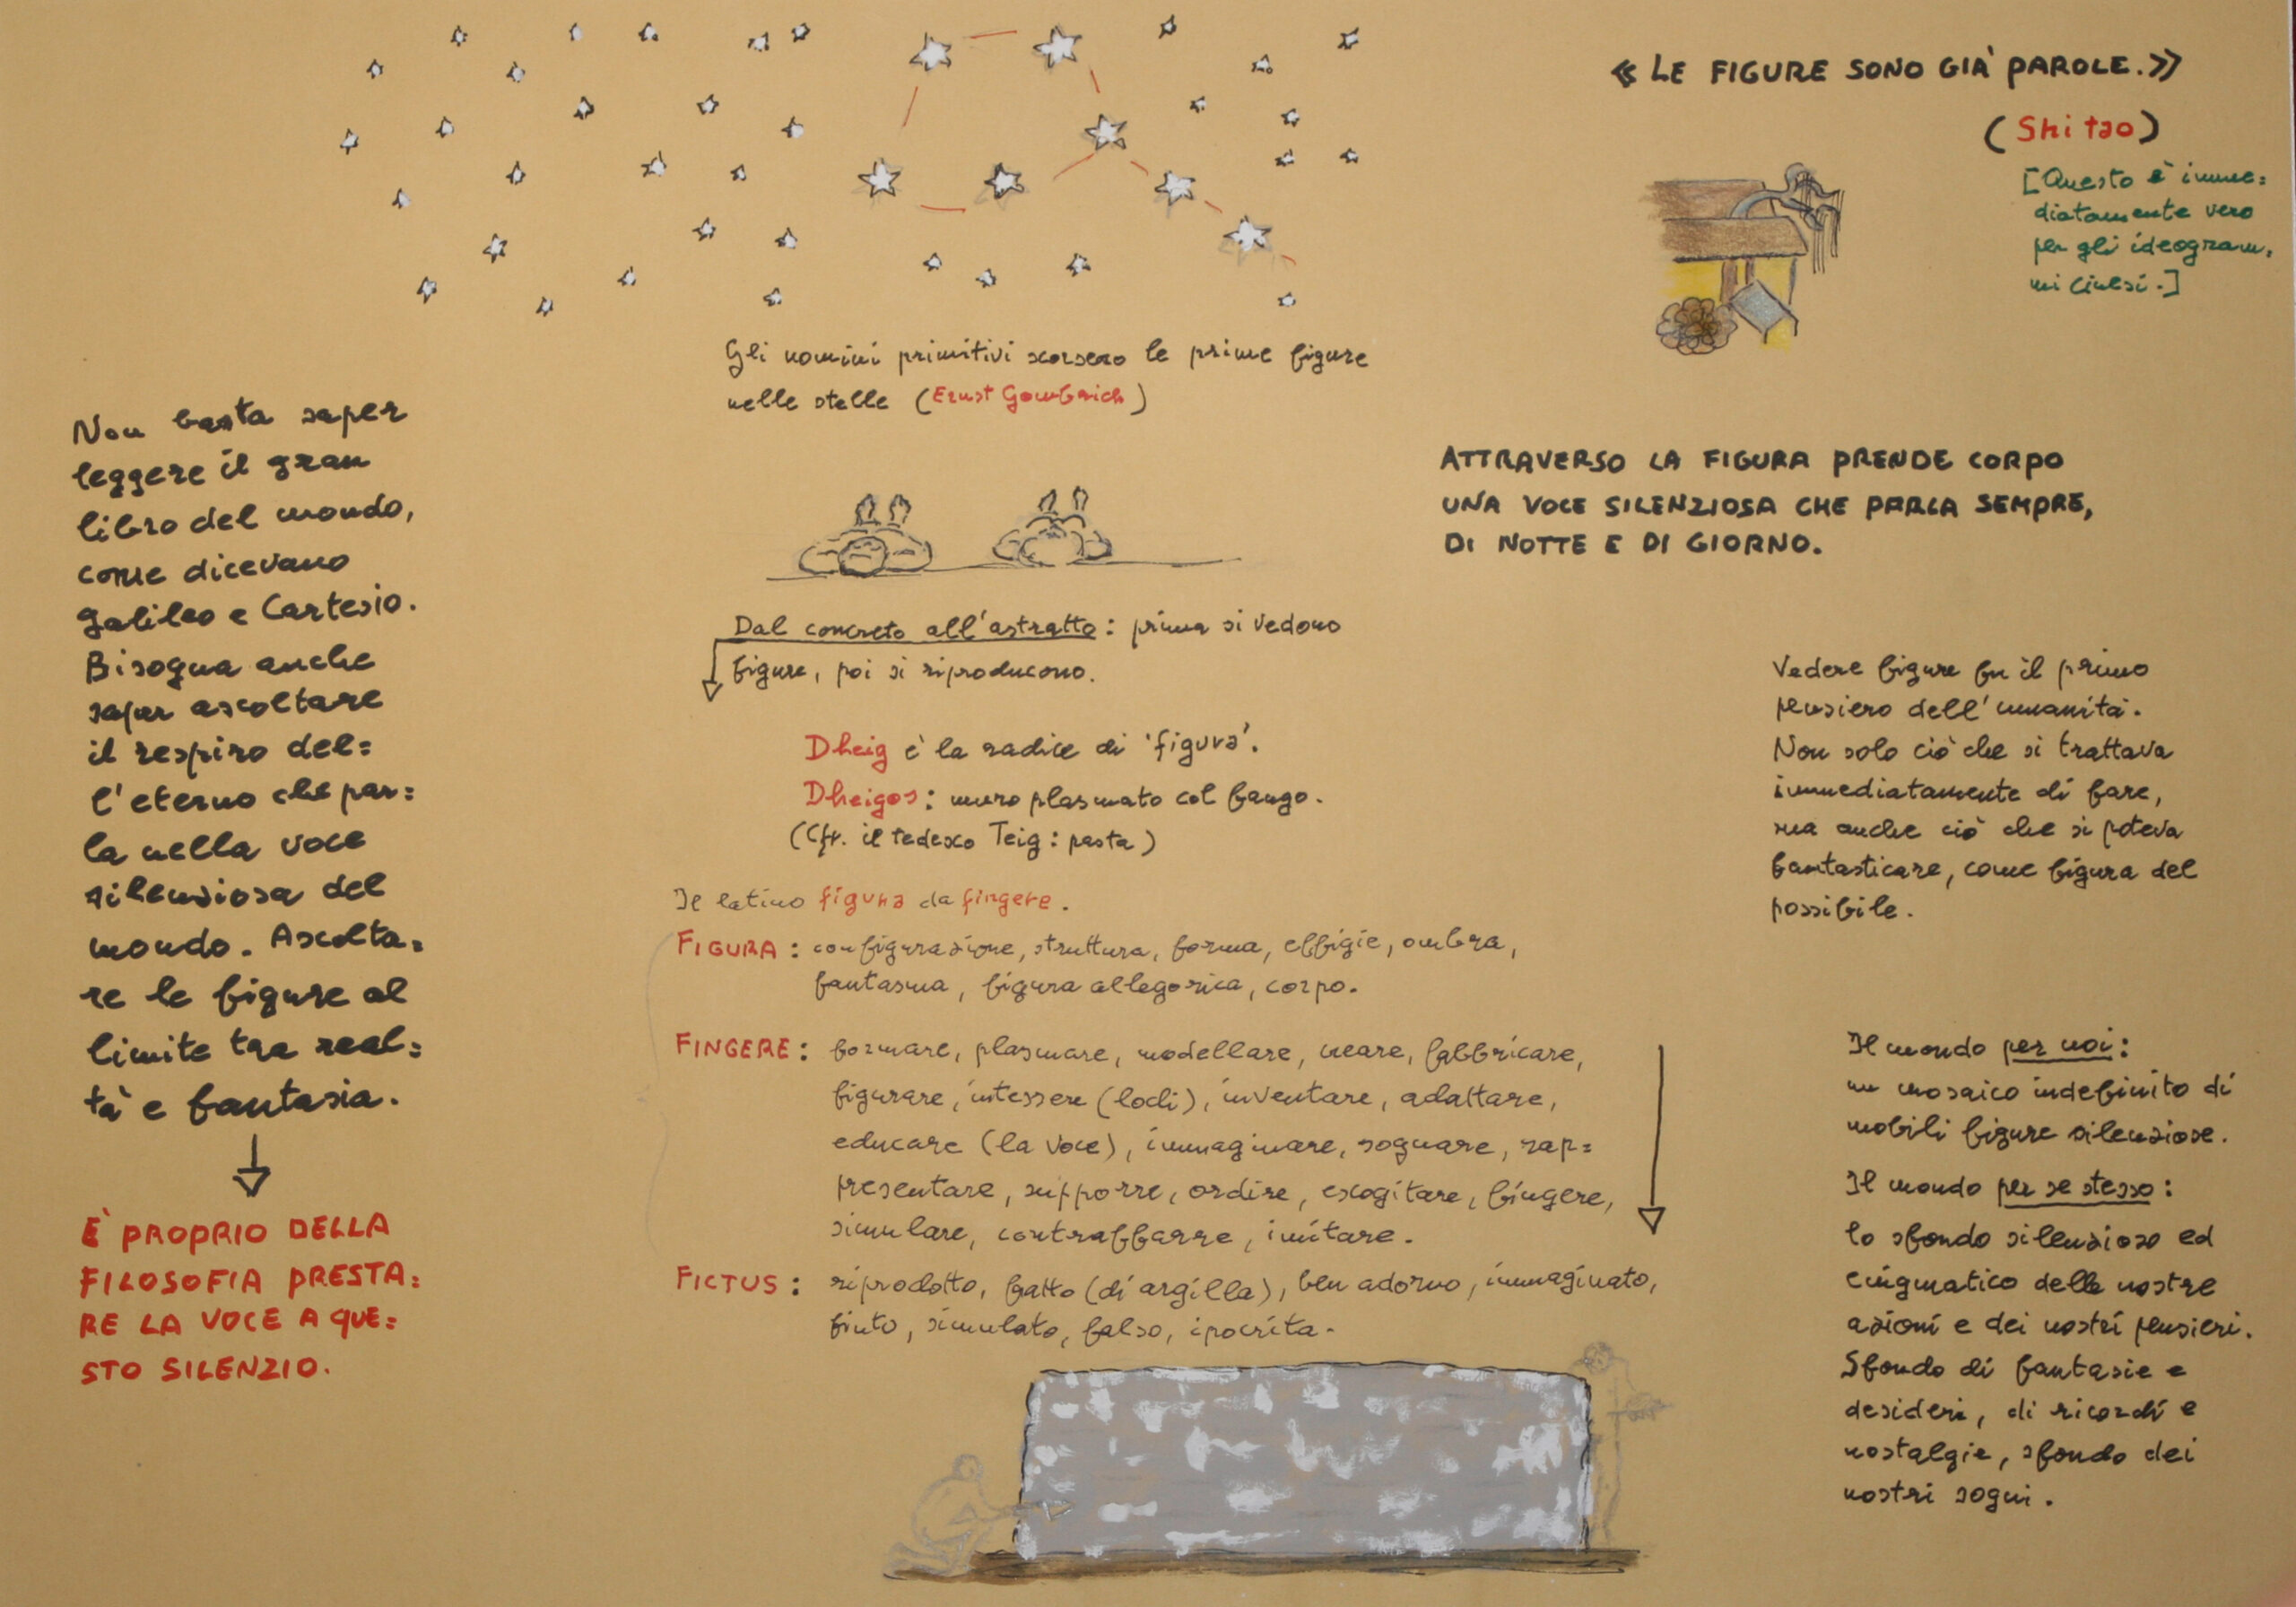 « LE FIGURE SONO GIÀ PAROLE.»
(Shitao)
[Questo è imme=
diatamente vero
per gli ideogram.
mi cinesi.]
Gli uomini primitivi scorsero le prime figure
nelle stelle (Ernst Gombrich)
Non basta saper
leggere il gran
libro del mondo,
come dicevano
Galileo e Cartesio.
Bisogna anche
saper ascoltare
il respiro del=
l'eterno che par=
la nella voce
silenziosa del
mondo. Ascolta=
re le figure al
limite tra real=
tà e fantasia.
È PROPRIO DELLA
FILOSOFIA PRESTA=
RE LA VOCE A QUE=
STO SILENZIO.
Dal concreto all'astratto: prima si vedono
figure, poi si riproducono.
Dheig è la radice di 'figura'.
Dheigos: muro plasmato col fango.
(Cfr. il tedesco Teig: pasta)
Il latino figura da fingere.
FIGURA: configurazione, struttura, forma, effigie, ombra,
fantasma, figura allegorica, corpo.
FINGERE: formare, plasmare, modellare, creare, fabbricare,
figurare, intessere (lodi), inventare, adattare,
educare (la voce), immaginare, sognare, rap=
presentare, supporre, ordire, escogitare, fingere,
simulare, contraffarre, imitare.
FICTUS: riprodotto, fatto (di argilla), ben adorno, immaginato,
finto, simulato, falso, ipocrita.
ATTRAVERSO LA FIGURA PRENDE CORPO
UNA VOCE SILENZIOSA CHE PARLA SEMPRE,
DI NOTTE E DI GIORNO.
Vedere figure fu il primo
pensiero dell'umanità.
Non solo ciò che si trattava
immediatamente di fare,
ma anche ciò che si poteva
fantasticare, come figura del
possibile.
Il mondo per noi:
un mosaico indefinito di
mobili figure silenziose.
Il mondo per se stesso:
lo sfondo silenzioso ed
enigmatico delle nostre
azioni e dei nostri pensieri.
Sfondo di fantasie e
desideri, di ricordi e
nostalgie, sfondo dei
nostri sogni.